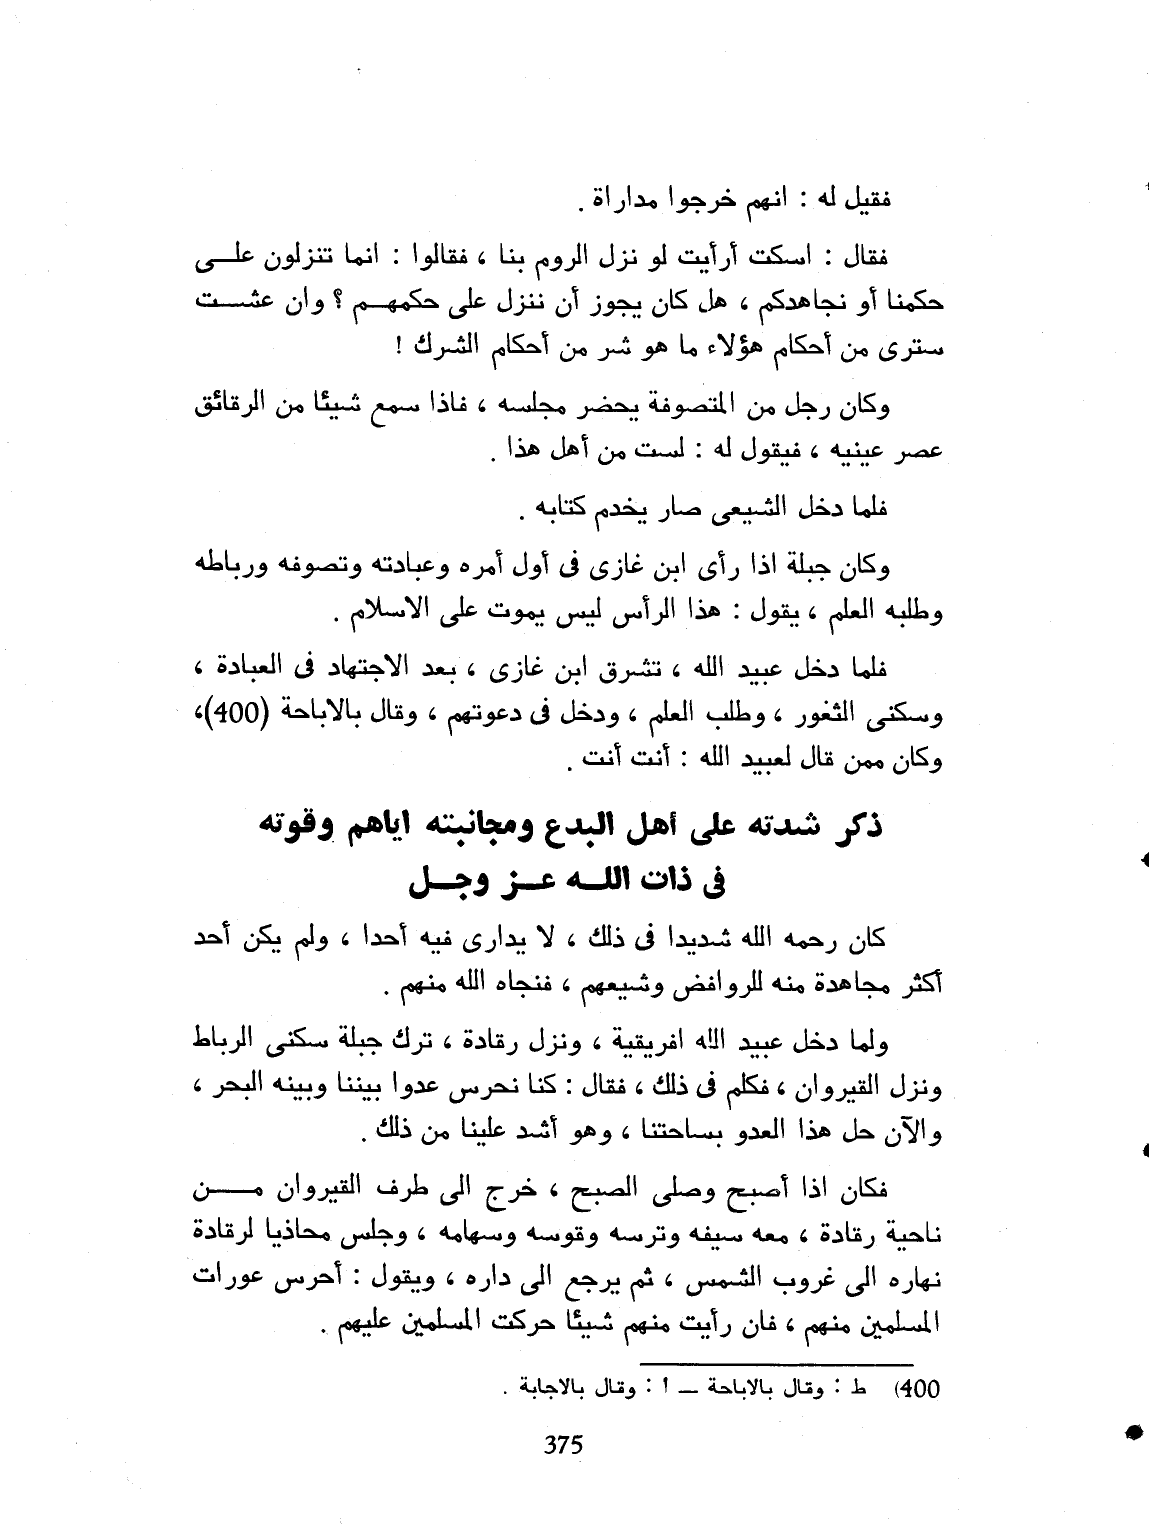 فقيل له : انهم خرجوا مداراة .
فقال : اسكت أرأيت لو نزل الروم بنا ، فقالوا : انما تنزلون على
حكمنا أو نجاهدكم ، هل كان يجوز أن ننزل على حكمهم ؟ وان عشت
سترى من أحكام هؤلاء ما هو شر من أحكام الشرك !
وكان رجل من المتصوفة يحضر مجلسه ، فاذا سمع شيئا من الرقائق
عصر عينيه ، فيقول له : لست من أهل هذا .
فلما دخل الشيعى صار يخدم كتابه .
وكان جبلة اذا رأى ابن غازى فى أول أمره وعبادته وتصوفه ورباطه
وطلبه العلم ، يقول : هذا الرأس ليس يموت على الاسلام .
فلما دخل عبيد الله ، تشرق ابن غازى ، بعد الاجتهاد فى العبادة ،
وسكنى الثغور ، وطلب العلم ، ودخل فى دعوتهم ، وقال بالاباحة (400)،
وكان ممن قال لعبيد الله : أنت أنت .
ذكر شدته على أهل البدع ومجانبته اياهم وقوته
فى ذات الله عز وجل
كان رحمه الله شديدا فى ذلك ، لا يدارى فيه أحدا ، ولم يكن أحد
أكثر مجاهدة منه للروافض وشيعهم ، فنجاه الله منهم .
ولما دخل عبيد الله افريقية ، ونزل رقادة ، ترك جبلة سكنى الرباط
ونزل القيروان ، فكلم فى ذلك ، فقال : كنا نحرس عدوا بيننا وبينه البحر ،
والآن حل هذا العدو بساحتنا ، وهو أشد علينا من ذلك .
فكان اذا أصبح وصلى الصبح ، خرج الى طرف القيروان من
ناحية رقادة ، معه سيفه وترسه وقوسه وسهامه ، وجلس محاذيا لرقادة
نهاره الى غروب الشمس ، ثم يرجع الى داره ، ويقول : أحرس عورات
المسلمين منهم ، فان رأيت منهم شيئا حركت المسلمين عليهم .
400) ط : وقال بالاباحة — أ : وقال بالاجابة .
375